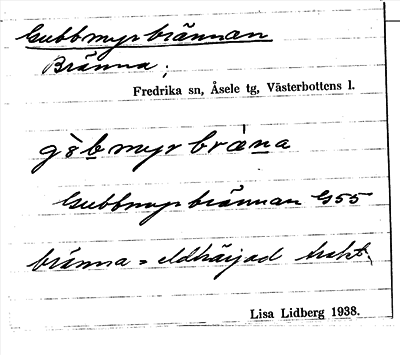 Gubbmyrbrännan
Bränna;
Fredrika sn, Åsele tg, Västerbottens l.
myrbràna
Gubbmyrbrännan G55
bränna = eldhärjad trakt.
Lisa Lidberg 1938.